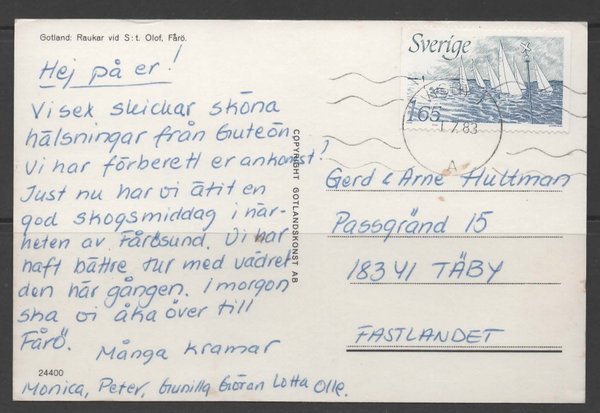 Gotland: Raukar vid S:t. Olof, Fårö.
Hej på er!
Vi sex, skickar sköna
hälsningar från Guteön.
Vi har förberett er ankomst!
Just nu har vi ätit en
god skogsmiddag i när-
heten av Fårösund. Vi har
haft bättre tur med vädret
den här gången. I morgon
ska vi åka över till
Fårö.
Många kramar
24400
Monica, Peter, Gunilla Göran Lotta Olle.
COPYRIGHT GOTLANDSKONST AB
Sverige
165
1.7.83
A
Gerd & Arne Hultman
Passgränd 15
183 41 TÄBY
FASTLANDET